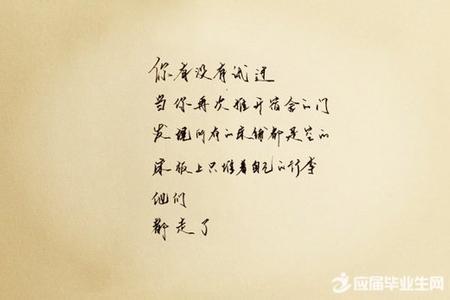 你有没有试过
当你再次推开宿舍的门
发现所有的床铺都是空的
床板上只堆着自己的行李
他们
都走了
应届毕业生网